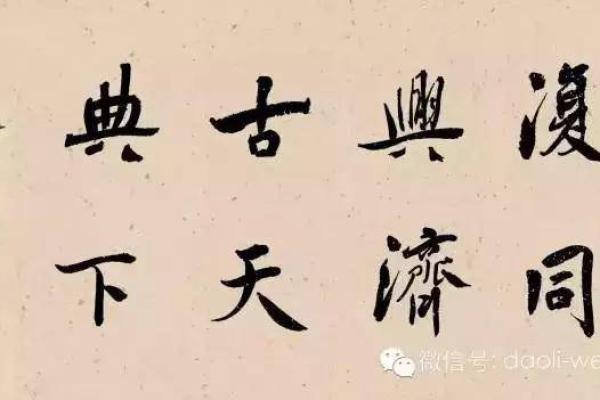 復興古典
同濟天下
微信号: daoli-we